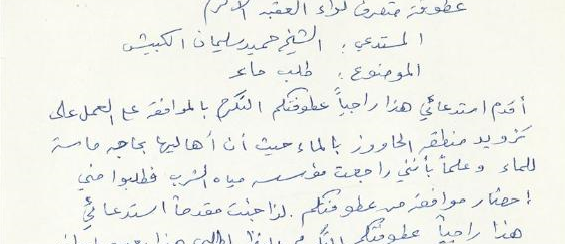 عطوفة متصرف لواء العقبة الاكرم
المستدعي: الشيخ حميد سليمان الكبيش
الموضوع: طلب ماء
أقدم استدعائي هذا راجياً عطوفتكم التكرم بالموافقة على العمل على
تزويد منطقة الحاووز بالماء حيث أن أهاليها بحاجه ماسة
للماء وعلماً بأنني راجعت مؤسسه مياه الشرب فطلبوا مني
إحضار موافقة من عطوفتكم. لذا جئت مقدماً استدعائي
هذا راجياً عطوفتكم التكرم